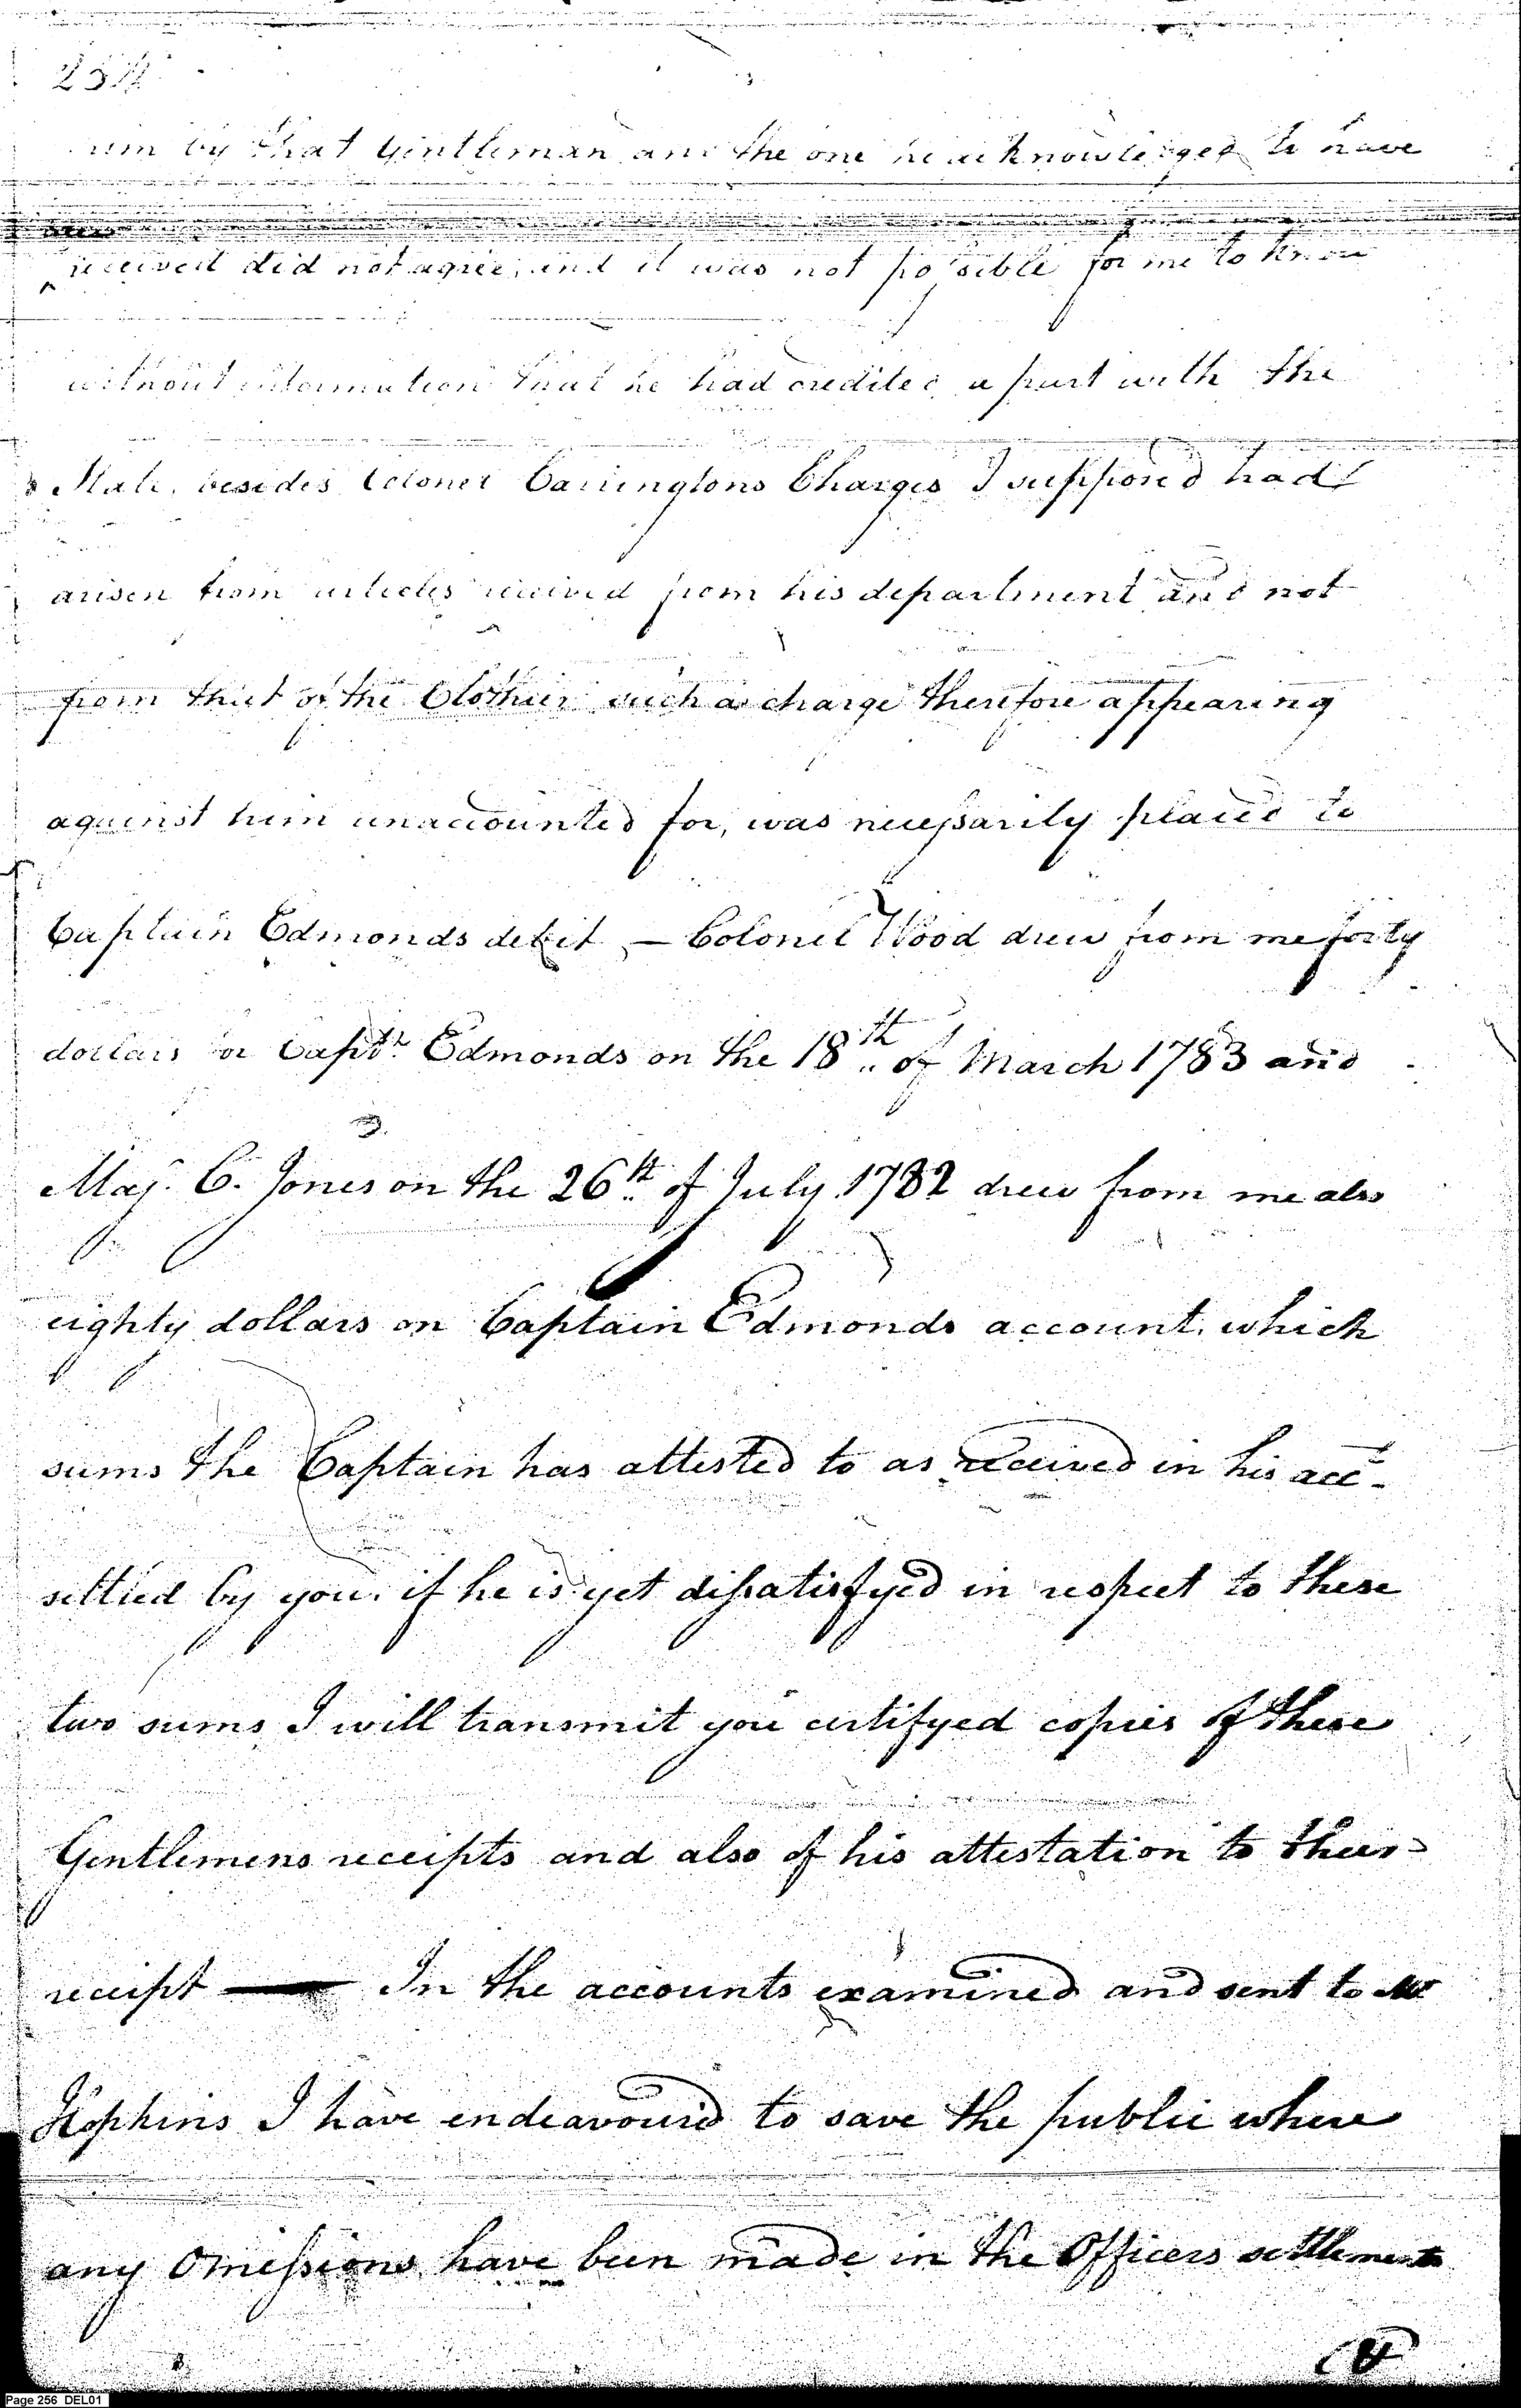 by that Gentleman and the one he acknowledged to have
received did not agree, and it was not possible for me to know
without information that he had credited a part with the
State, besides Colonel Carringtons Charges I supposed had
arisen from articles received from his department and not
from that of the Clothier such a charge therefore appearing
against him unaccounted for, was necessarily placed to
Captain Edmonds debit — Colonel Wood drew from me forty
dollars for Captn Edmonds on the 18th of March 1783 and
Maj. C. Jones on the 26th of July 1782 drew from me also
eighty dollars on Captain Edmonds account, which
sums the Captain has attested to as received in his acct.
settled by you. if he is yet dissatisfyed in respect to these
two sums I will transmit you certifyed copies of these
Gentlemens receipts and also of his attestation to their
receipt — In the accounts examined and sent to Mr
Hopkins I have endeavoured to save the public where
any Omissions have been made in the Officers settlements
Page 256 DEL01